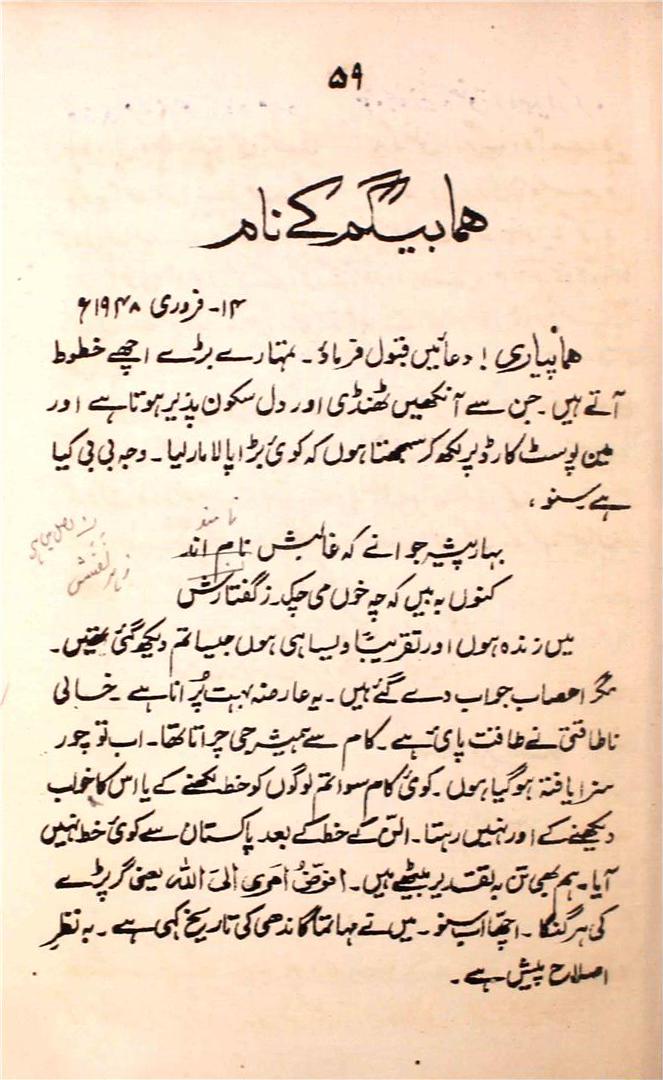 ۵۹
ہما بیگم کے نام
۱۴- فروری ۱۹۴۸ء
ہما پیاری! دعائیں قبول فرماؤ۔ تمہارے بڑے اچھے خطوط
آتے ہیں۔ جن سے آنکھیں ٹھنڈی اور دل سکون پذیر ہوتا ہے اور
مین پوسٹ کارڈ پر لکھ کر سمجھتا ہوں کہ کوئی بڑا پالا مار لیا۔ وجہ بی بی کیا
ہے سنو،
نامند
بہار پیشہ جوانے کہ غالبش نام اند
کنوں بہ بیں کہ چہ خوں می چکد ز گفتارش
ز ہر نفسش
میں زندہ ہوں اور تقریباً ویسا ہی ہوں جیسا تم دیکھ گئی تھیں۔
مگر اعصاب جواب دے گئے ہیں۔ یہ عارضہ بہت پُرانا ہے۔ خالی
ناطاقتی نے طاقت پائی ہے۔ کام سے ہمیشہ جی چراتا تھا۔ اب تو چور
سزا یافتہ ہو گیا ہوں۔ کوئی کام سوا تم لوگوں کو خط لکھنے کے یا اس کا خواب
دیکھنے کے اور نہیں رہتا۔ الن کے خط کے بعد پاکستان سے کوئی خط نہیں
آیا۔ ہم بھی تن بہ تقدیر بیٹھے ہیں۔ افوّضُ امری الیٰ اللہ یعنی گر پڑے
کی ہر گنگا۔ اچھا اب سنو۔ میں نے مہاتما گاندھی کی تاریخ کہی ہے۔ بہ نظرِ
اصلاح پیش ہے۔